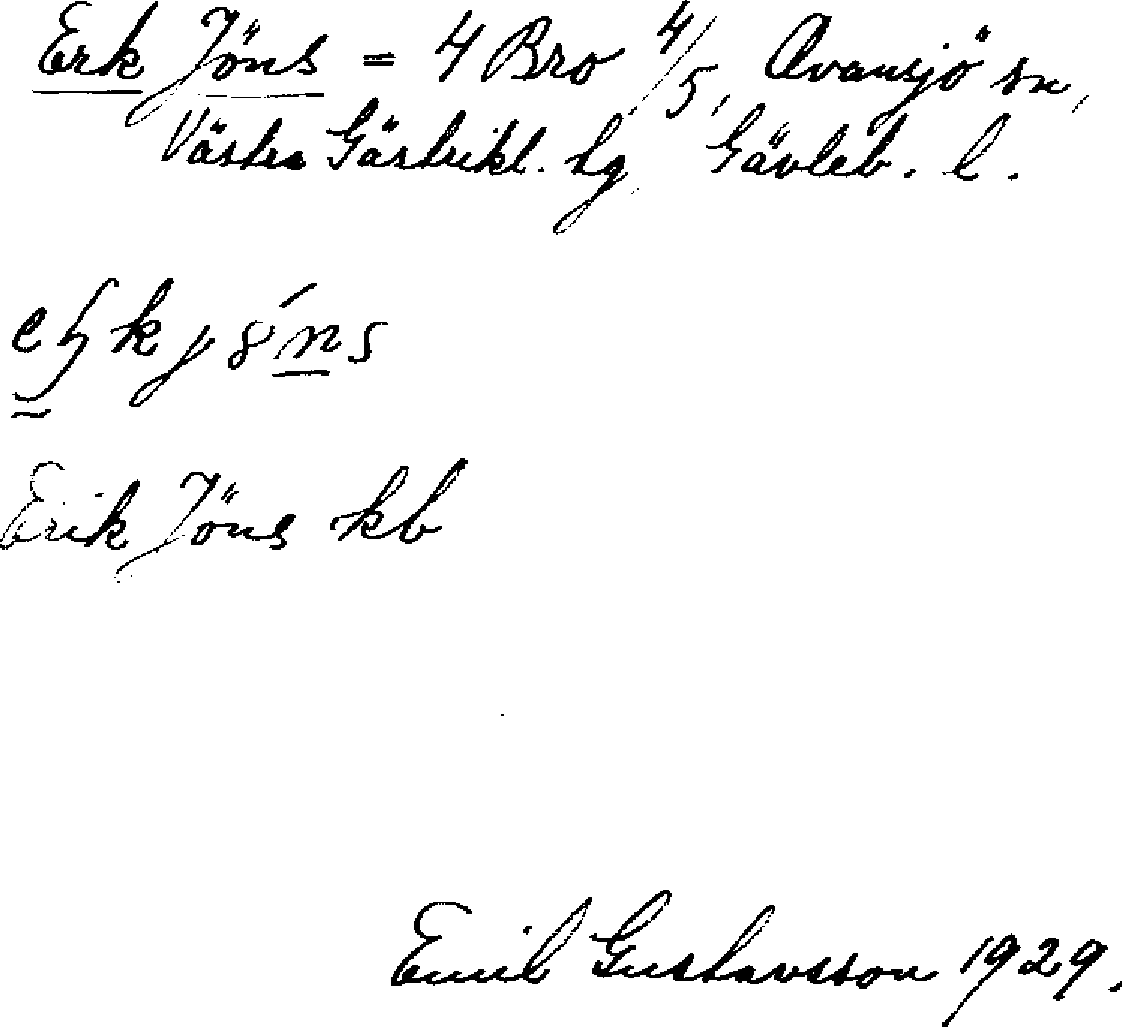 Erk Jöns = 4 Bro 4/5, Ovansjö sn,
Västra Gästrikl. hg Gävleb. l.
Erik Jöns kb
Emil Gustavsson 1929.